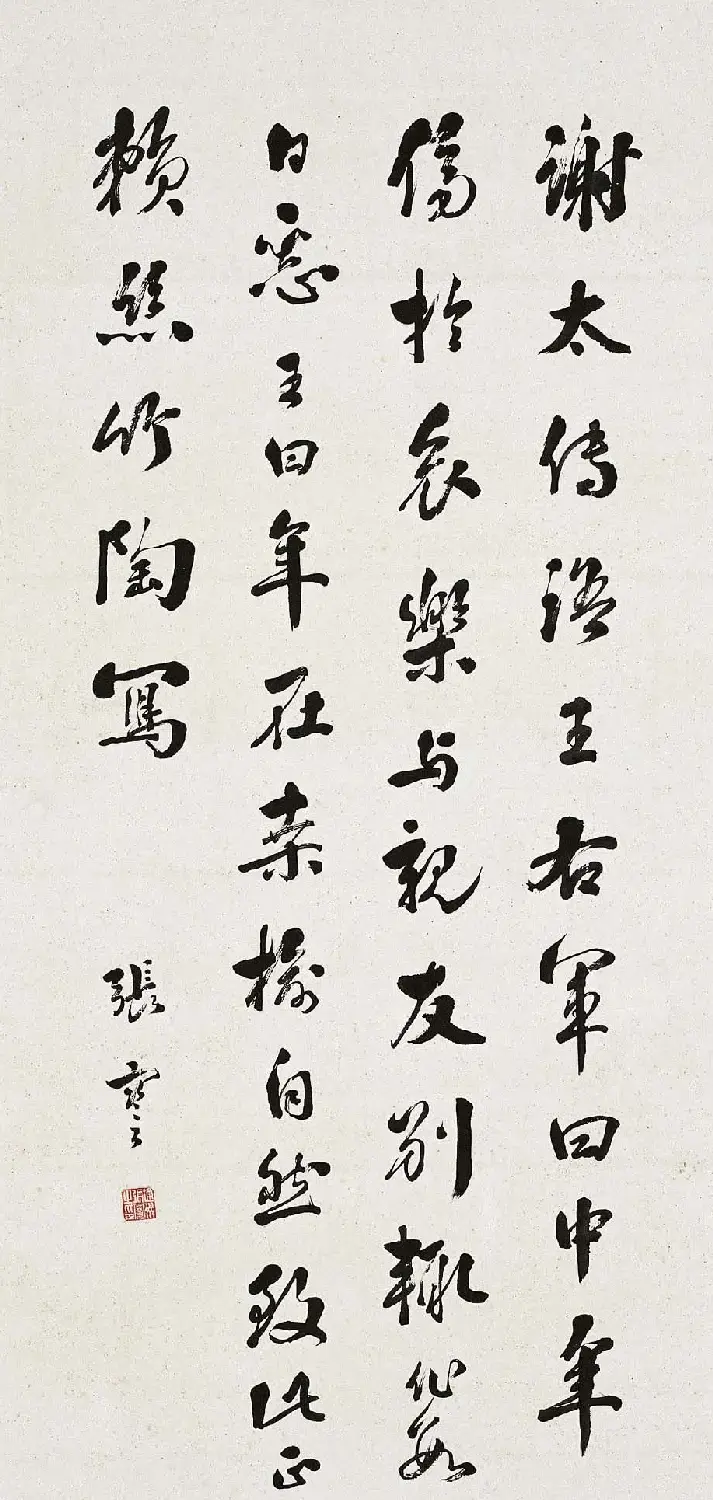 謝太傅語王右軍曰中年
傷於哀樂與親友別輒作數
日惡王曰年在桑榆自然致此正
賴絲竹陶寫
張謇